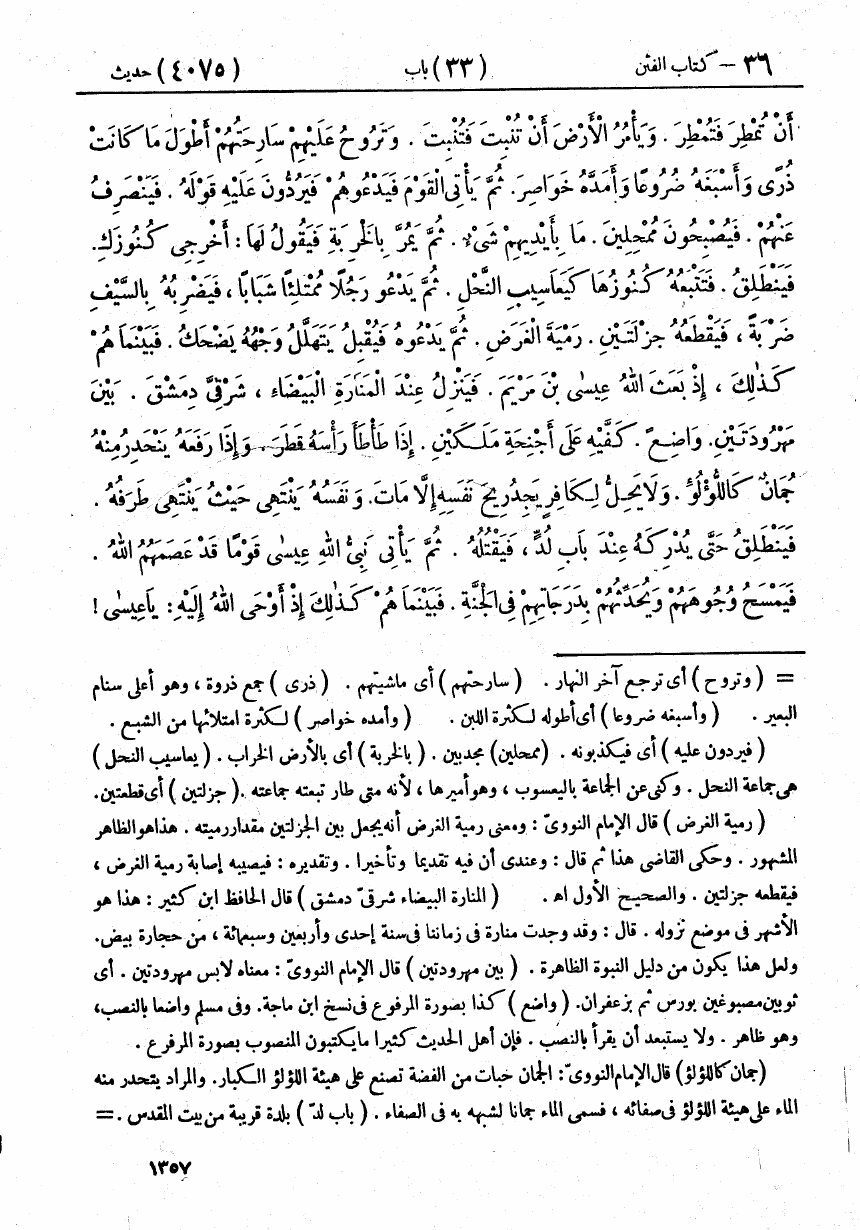 ٣٦ – كتاب الفتن (٣٣) باب (٤٠٧٥) حديث
أَنْ تُمْطِرَ فَتُمْطِرَ . وَيَأْمُرُ الْأَرْضَ أَنْ تُنْبِتَ فَتُنْبِتَ . وَتَرُوحُ عَلَيْهِمْ سَارِحَتُهُمْ أَطْوَلَ مَا كَانَتْ
ذُرًى وَأَسْبَغَهُ ضُرُوعًا وَأَمَدَّهُ خَوَاصِرَ. ثُمَّ يَأْتِى الْقَوْمَ فَيَدْعُوهُمْ فَيَرُدُّونَ عَلَيْهِ قَوْلَهُ . فَيَنْصَرِفُ
عَنْهُمْ . فَيُصْبِحُونَ مُمْحِلِينَ. مَا بِأَيْدِيهِمْ شَىْءٌ . ثُمَّ يَمُرُّ بِالْخَرِبَةِ فَيَقُولُ لَهَا : أَخْرِجِى كُنُوزَكِ.
فَيَنْطَلِقُ . فَتَتْبَعُهُ كُنُوزُهَا كَيَعَاسِيبِ النَّحْلِ . ثُمَّ يَدْعُو رَجُلًا مُمْتَلِئًا شَبَابًا ، فَيَضْرِبُهُ بِالسَّيْفِ
ضَرْبَةً ، فَيَقْطَعُهُ جِزْلَتَيْنِ. رَمْيَةَ الْغَرَضِ . ثُمَّ يَدْعُوهُ فَيُقْبِلُ يَتَهَلَّلُ وَجْهُهُ يَضْحَكُ . فَبَيْنَمَا هُمْ
كَذٰلِكَ ، إِذْ بَعَثَ اللهُ عِيسٰى بْنَ مَرْيَمَ . فَيَنْزِلُ عِنْدَ الْمَنَارَةِ الْبَيْضَاءِ ، شَرْقِىَّ دِمَشْقَ . بَيْنَ
مَهْرُودَتَيْنِ. وَاضِعٌ . كَفَّيْهِ عَلَى أَجْنِحَةِ مَلَكَيْنِ . إِذَا طَأْطَأَ رَأْسَهُ قَطَرَ . وَإِذَا رَفَعَهُ يَنْحَدِرُ مِنْهُ
جُمَانٌ كَاللُّؤْلُؤِ . وَلَا يَحِلُّ لِكَافِرٍ يَجِدُ رِيحَ نَفَسِهِ إِلَّا مَاتَ. وَنَفَسُهُ يَنْتَهِى حَيْثُ يَنْتَهِى طَرَفُهُ .
فَيَنْطَلِقُ حَتَّى يُدْرِكَهُ عِنْدَ بَابِ لُدٍّ ، فَيَقْتُلُهُ . ثُمَّ يَأْتِى نَبِىُّ اللهِ عِيسٰى قَوْمًا قَدْ عَصَمَهُمُ اللهُ .
فَيَمْسَحُ وُجُوهَهُمْ وَيُحَدِّثُهُمْ بِدَرَجَاتِهِمْ فِى الْجَنَّةِ . فَبَيْنَمَا هُمْ كَذٰلِكَ إِذْ أَوْحَى اللهُ إِلَيْهِ : يَا عِيسٰى !
= ( وتروح ) أى ترجع آخر النهار . ( سارحتهم ) أى ماشيتهم . ( ذرى ) جمع ذروة ، وهو أعلى سنام
البعير . ( وأسبغه ضروعا ) أى أطوله لكثرة اللبن . ( وأمده خواصر ) لكثرة امتلائها من الشبع .
( فيردون عليه ) أى فيكذبونه . (ممحلين) مجدبين . ( بالخربة ) أى بالأرض الخراب . ( يعاسيب النحل )
هى جماعة النحل . وكنى عن الجماعة باليعسوب ، وهو أميرها ، لأنه متى طار تبعته جماعته .( جزلتين ) أى قطعتين.
( رمية الغرض ) قال الإمام النووىّ : ومعنى رمية الغرض أنه يجعل بين الجزلتين مقدار رميته . هذا هو الظاهر
المشهور . وحكى القاضى هذا ثم قال : وعندى أن فيه تقديما وتأخيرا . وتقديره : فيصيبه إصابة رمية الغرض ،
فيقطعه جزلتين . والصحيح الأول اه . ( المنارة البيضاء شرقىّ دمشق ) قال الحافظ ابن كثير : هذا هو
الأشهر فى موضع نزوله . قال : وقد وجدت منارة فى زماننا فى سنة إحدى وأربعين وسبعمائة ، من حجارة بيض.
ولعل هذا يكون من دليل النبوة الظاهرة . ( بين مهرودتين ) قال الإمام النووىّ : معناه لابس مهرودتين . أى
ثوبين مصبوغين بورس ثم بزعفران. ( واضع ) كذا بصورة المرفوع فى نسخ ابن ماجة. وفى مسلم واضعا بالنصب،
وهو ظاهر . ولا يستبعد أن يقرأ بالنصب . فإن أهل الحديث كثيرا ما يكتبون المنصوب بصورة المرفوع .
(جمان كاللؤلؤ) قال الإمام النووىّ: الجمان حبات من الفضة تصنع على هيئة اللؤلؤ الكبار. والمراد يتحدر منه
الماء على هيئة اللؤلؤ فى صفائه ، فسمى الماء جمانا لشبهه به فى الصفاء . ( باب لدّ ) بلدة قريبة من بيت المقدس .=
١٣٥٧